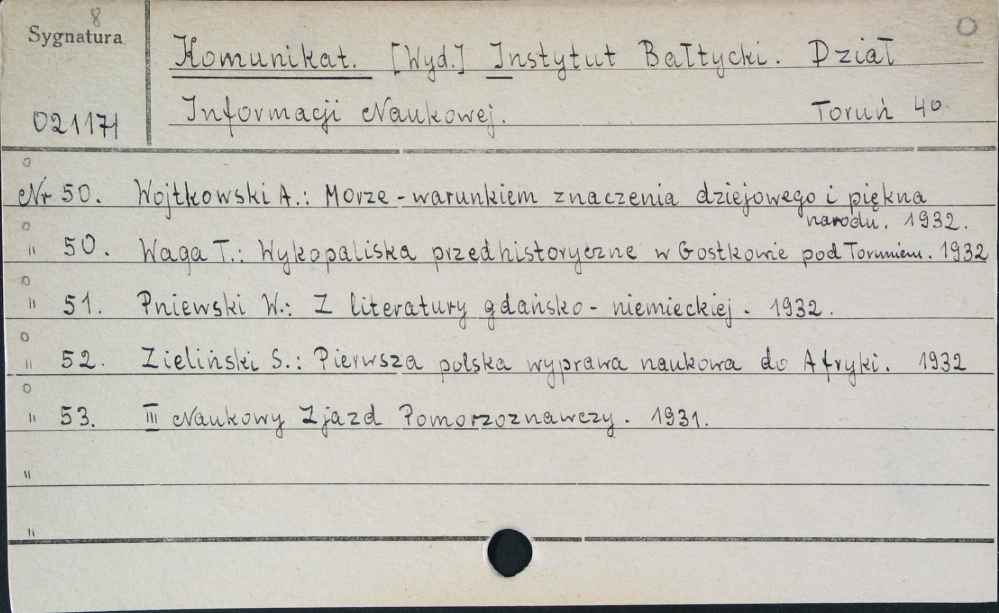 8
Sygnatura
Komunikat. [Wyd.] Instytut Bałtycki. Dział
O
021171
Informacji Naukowej.
Toruń 4o.
Nr 50. Wojtkowski A.: Morze - warunkiem znaczenia dziejowego i piękna
narodu. 1932.
" 50. Waga T.: Wykopaliska przedhistoryczne w Gostkowie pod Toruniem. 1932
" 51. Pniewski W.: Z literatury gdańsko - niemieckiej. 1932.
" 52. Zieliński S.: Pierwsza polska wyprawa naukowa do Afryki. 1932
" 53. III Naukowy Zjazd Pomorzoznawczy. 1931.
"
"